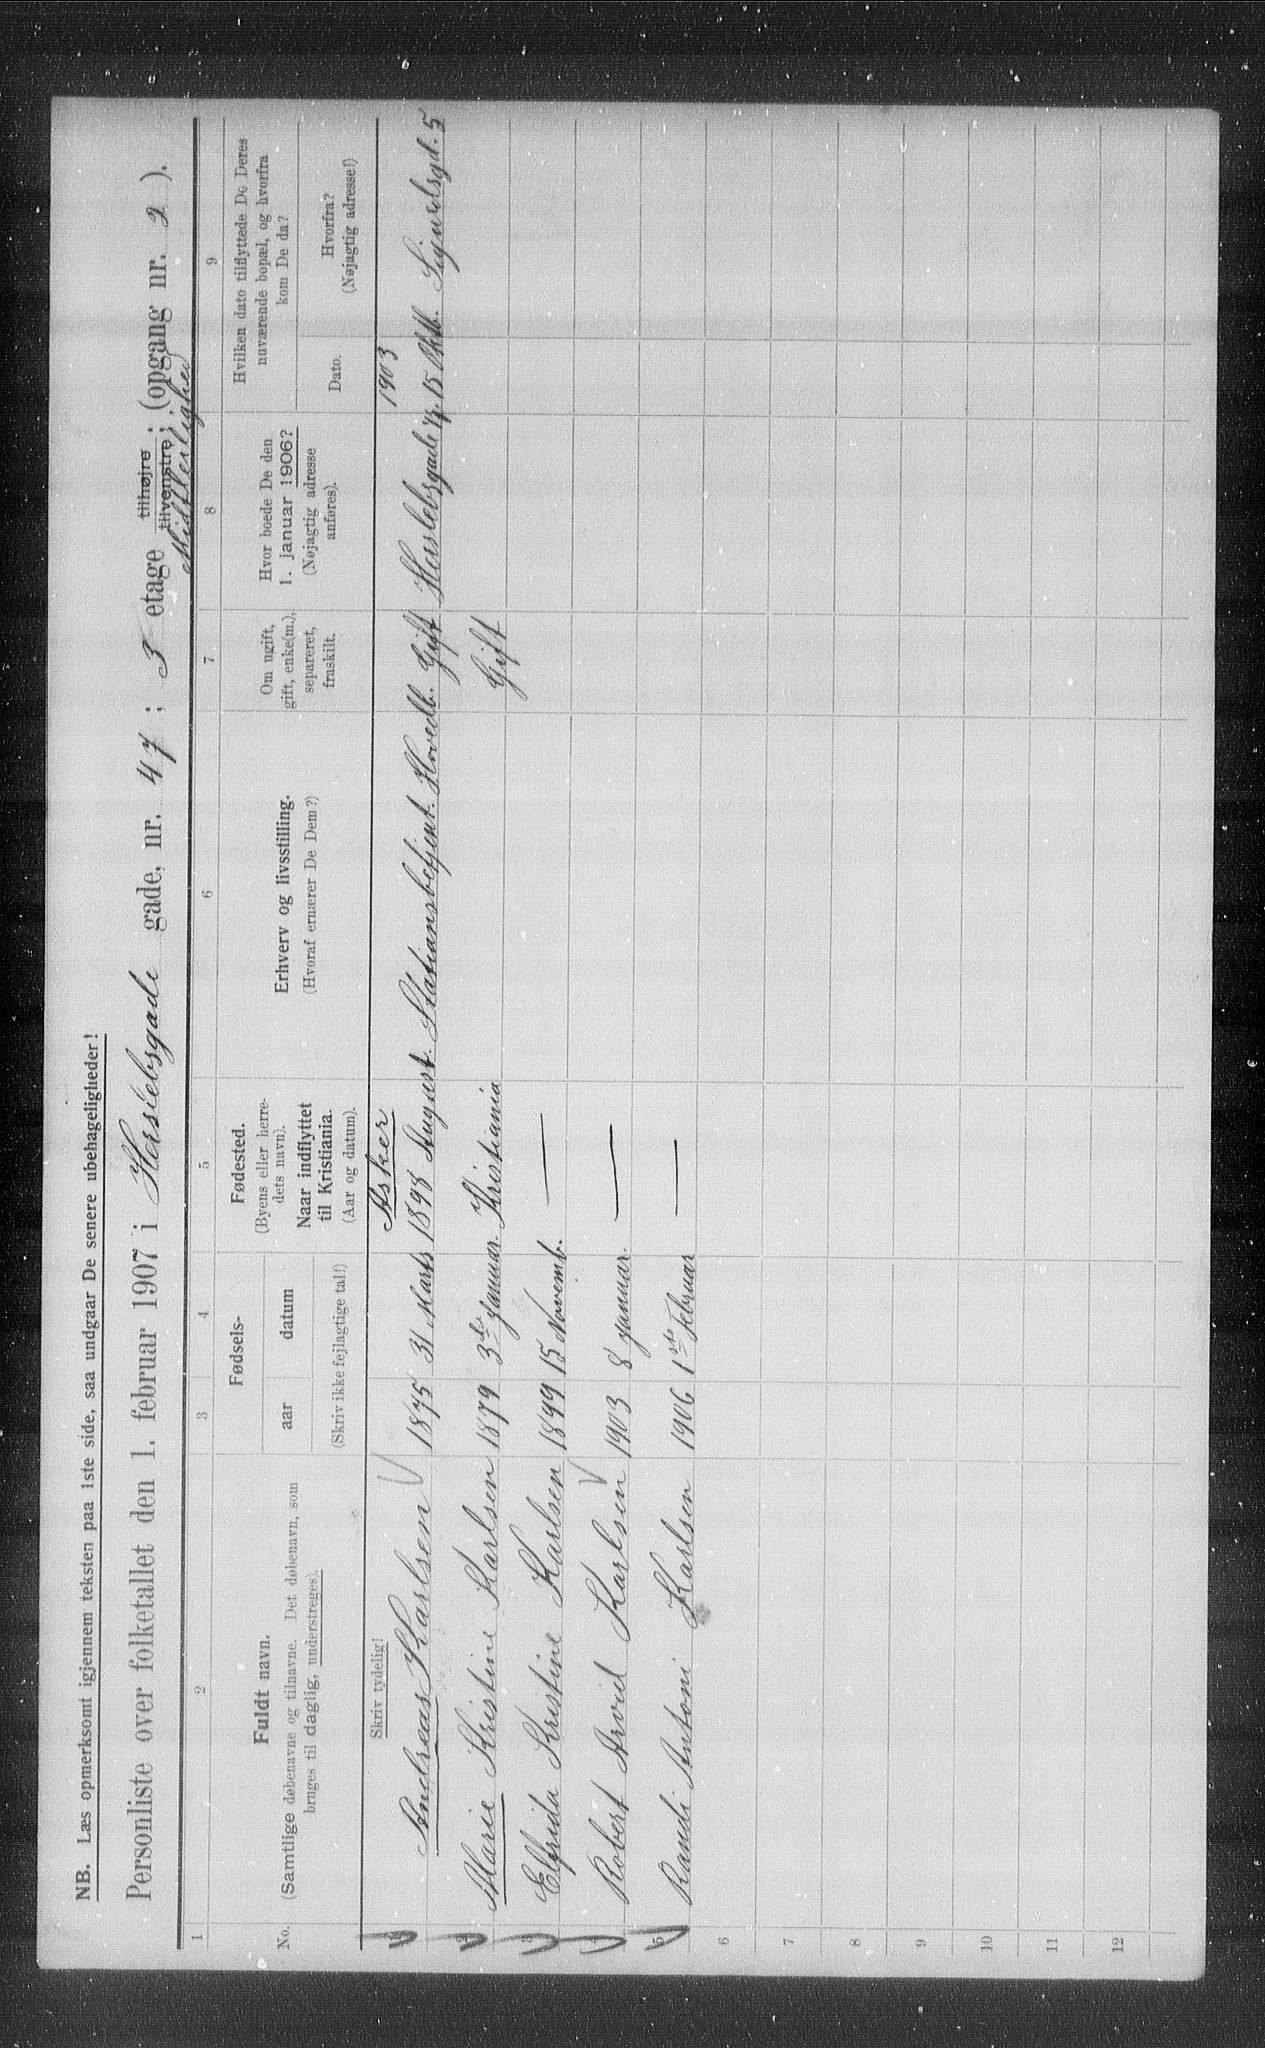 NB. Læs opmerksomt igjennem teksten paa 1ste side, saa undgaar De senere ubehageligheder!
Personliste over folketallet den 1. februar 1907 i Herslebsgade gade, nr. 47; 3 etage tilhøjre tilvenstre; (opgang nr. 2).
Midtlerlighed
1 2 3 4 5 6 7 8 9
No.
Fuldt navn.
(Samtlige døbenavne og tilnavne. Det døbenavn, som
bruges til daglig, understreges).
Fødsels-
aar datum
(Skriv ikke fejlagtige tal!)
Fødested.
(Byens eller herre-
dets navn).
Naar indflyttet
til Kristiania.
(Aar og datum).
Erhverv og livsstilling.
(Hvoraf ernærer De Dem?)
Om ugift,
gift, enke(m.),
separeret,
fraskilt.
Hvor boede De den
1. januar 1906?
(Nøjagtig adresse
anføres).
Hvilken dato tilflyttede De Deres
nuværende bopæl, og hvorfra
kom De da?
Dato.
Hvorfra?
(Nøjagtig adresse!)
Skriv tydelig!
Asker 1903
1 Andreas Karlsen 1875 31 Marts 1898 August. Stationsbetjent. Hovedb. Gift Herslebsgade 47. 15 Oktb. Sigurdsgd. 5
2 Marie Kristine Karlsen 1879 3de Januar. Kristiania Gift
3 Elfrida Kristine Karlsen 1899 15 Novemb. —
4 Robert Arvid Karlsen 1903 8 Januar. —
5 Randi Antoni Karlsen 1906 1ste Februar —
6
7
8
9
10
11
12